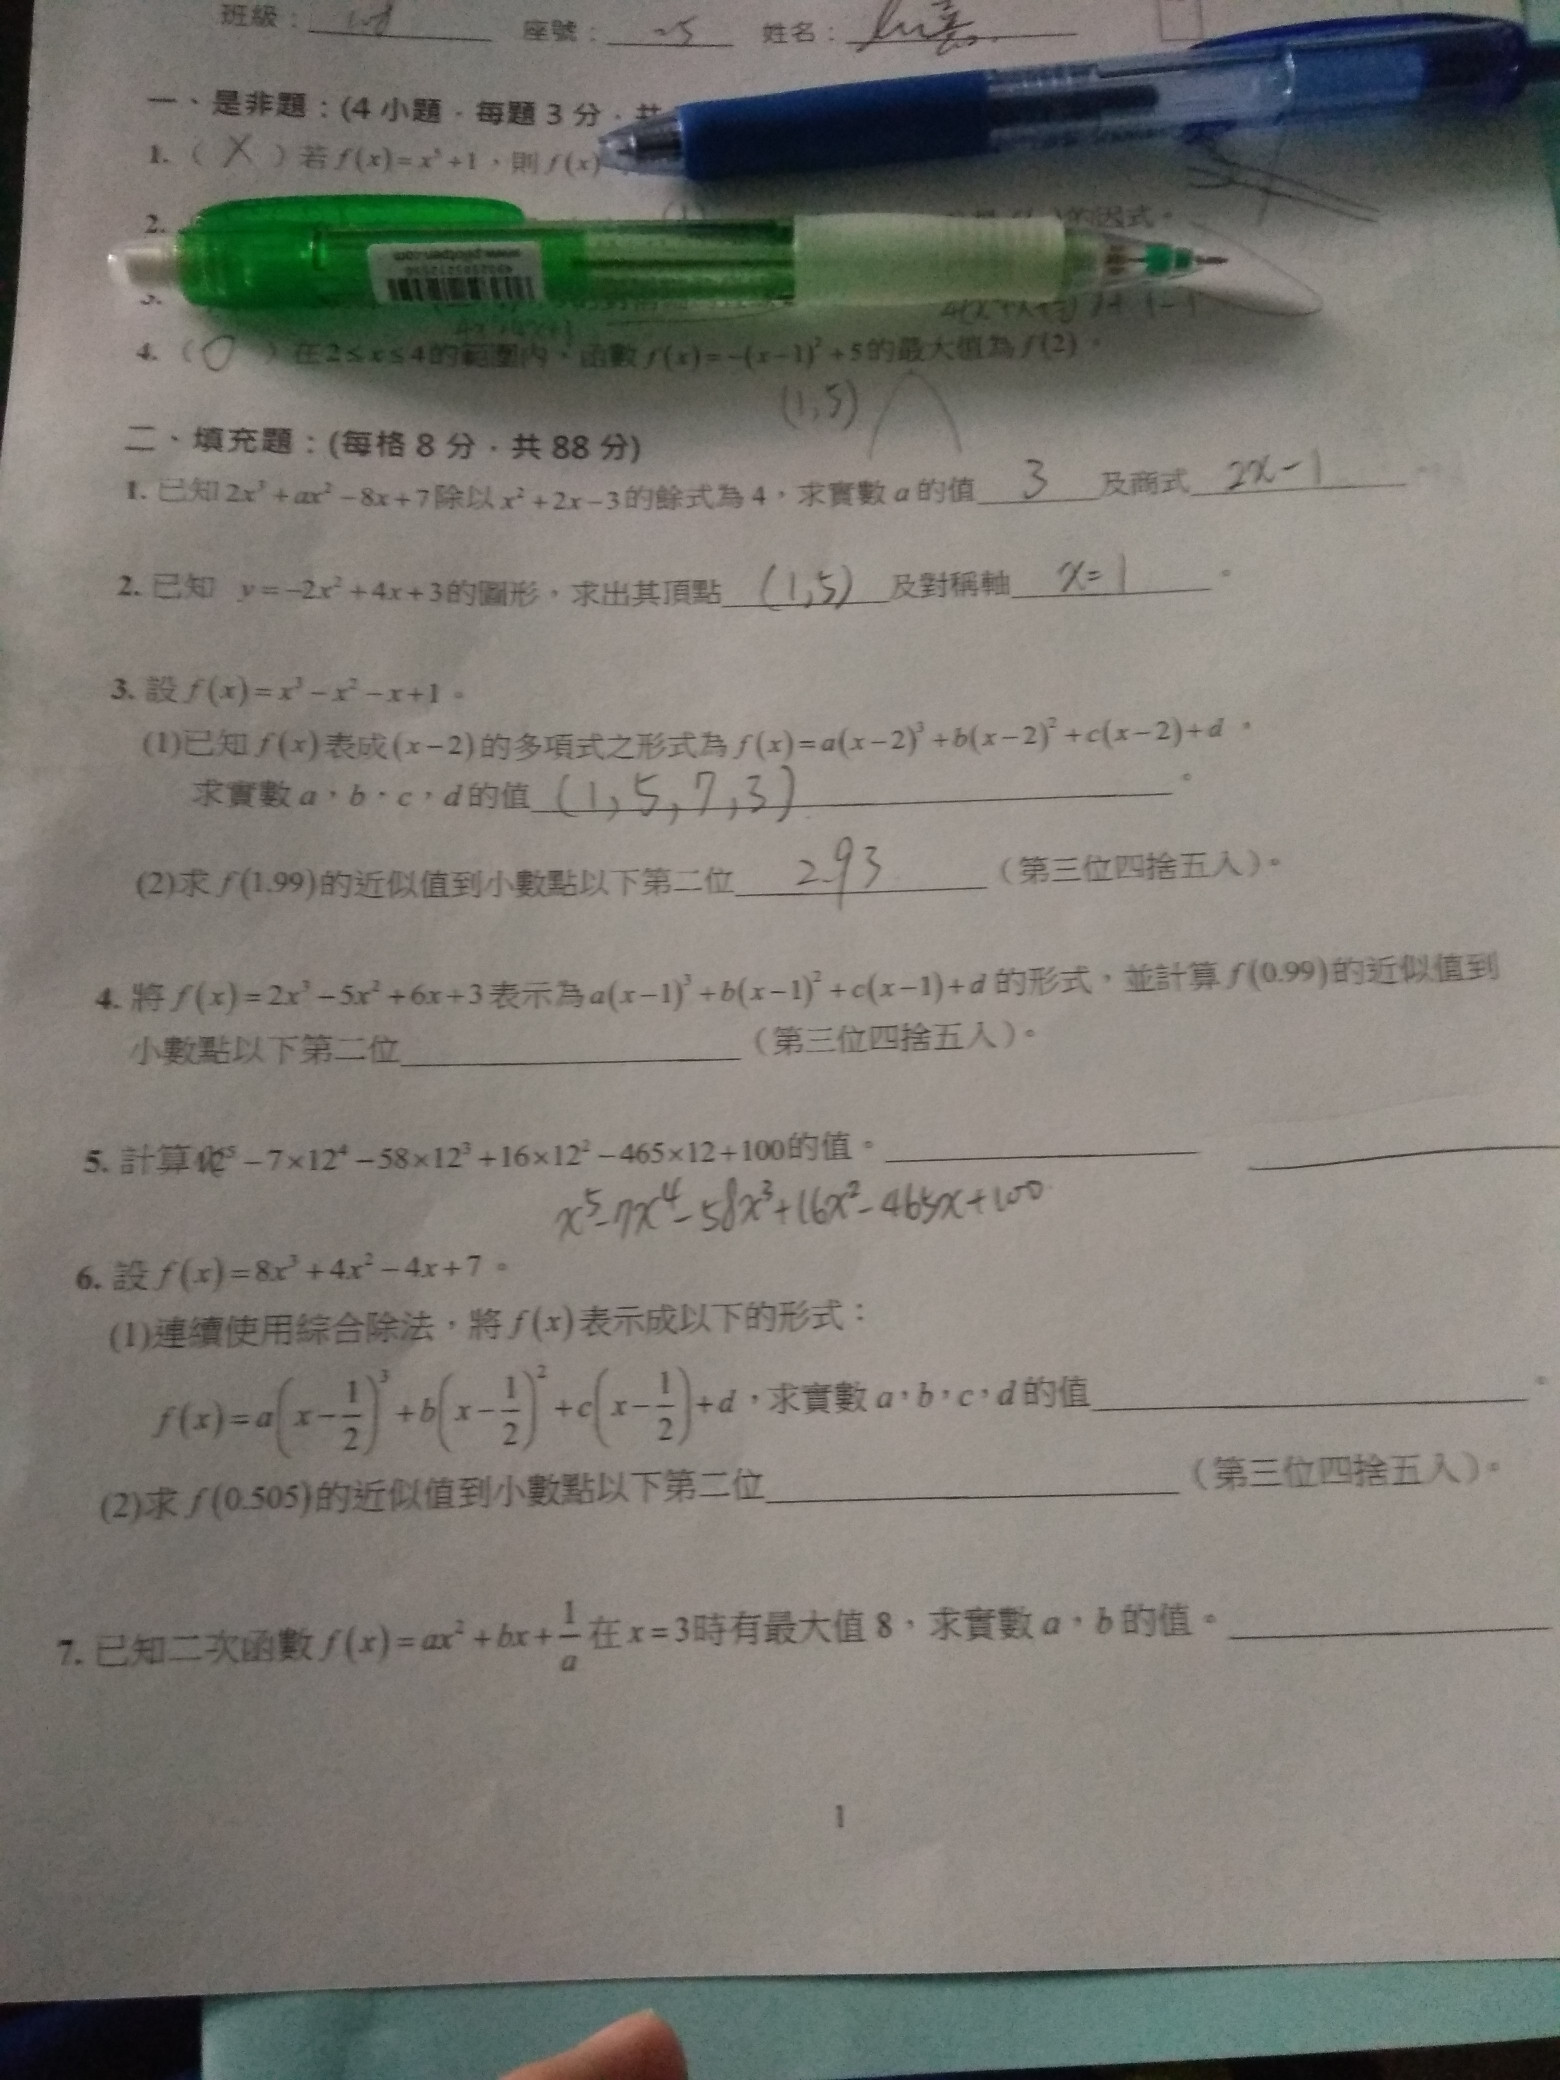 班級： 座號：25 姓名：
一、是非題：(4 小題．每題 3 分．共
1.（ X ）若 f(x)=x³+1，則 f(x)
2. 的因式。
3.
4.（ O ）在 2≤x≤4 的範圍內，函數 f(x)=-(x-1)²+5 的最大值為 f(2)。
(1,5)
二、填充題：(每格 8 分．共 88 分)
1. 已知 2x³+ax²-8x+7 除以 x²+2x-3 的餘式為 4，求實數 a 的值 3 及商式 2x-1。
2. 已知 y=-2x²+4x+3 的圖形，求出其頂點 (1,5) 及對稱軸 x=1。
3. 設 f(x)=x³-x²-x+1。
(1)已知 f(x) 表成 (x-2) 的多項式之形式為 f(x)=a(x-2)³+b(x-2)²+c(x-2)+d。
求實數 a，b，c，d 的值 (1,5,7,3)。
(2)求 f(1.99) 的近似值到小數點以下第二位 2.93（第三位四捨五入）。
4. 將 f(x)=2x³-5x²+6x+3 表示為 a(x-1)³+b(x-1)²+c(x-1)+d 的形式，並計算 f(0.99) 的近似值到
小數點以下第二位（第三位四捨五入）。
5. 計算 12⁵-7×12⁴-58×12³+16×12²-465×12+100 的值。
x⁵-7x⁴-58x³+16x²-465x+100
6. 設 f(x)=8x³+4x²-4x+7。
(1)連續使用綜合除法，將 f(x) 表示成以下的形式：
f(x)=a(x-1/2)³+b(x-1/2)²+c(x-1/2)+d，求實數 a，b，c，d 的值。
(2)求 f(0.505) 的近似值到小數點以下第二位（第三位四捨五入）。
7. 已知二次函數 f(x)=ax²+bx+1/a 在 x=3 時有最大值 8，求實數 a，b 的值。
1